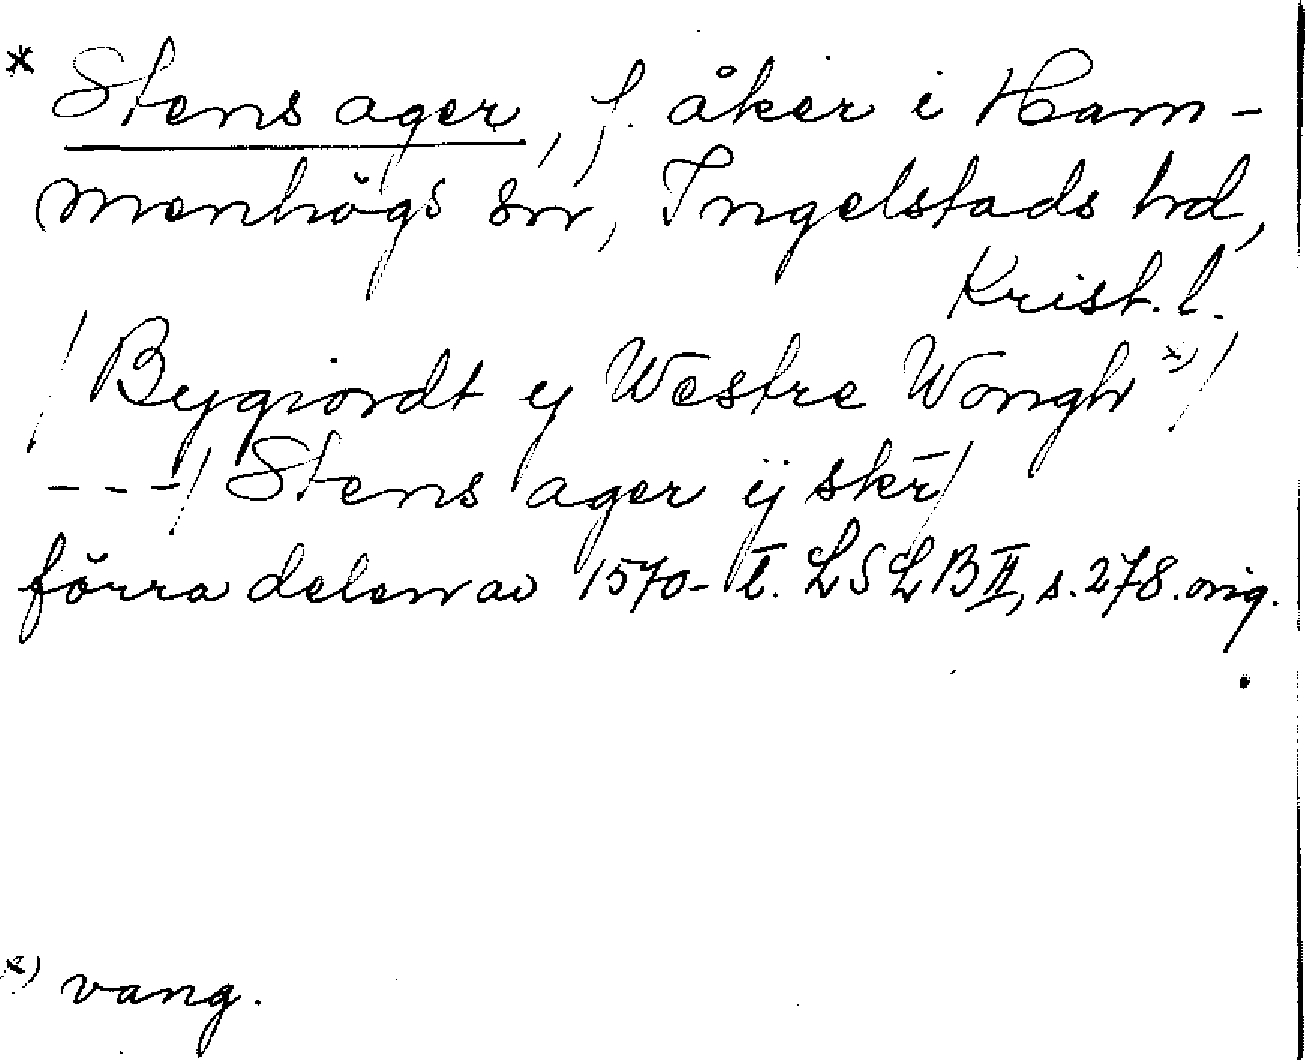 * Stens ager, f. åker i Ham-
menhögs sn, Ingelstads hd,
Krist. l.
/ Bygiordt ij Westre Wongh *) /
---/ Stens ager ij skr̄ /
förra delen av 1570-t. LSLB II, s. 278. orig.
*) vang.